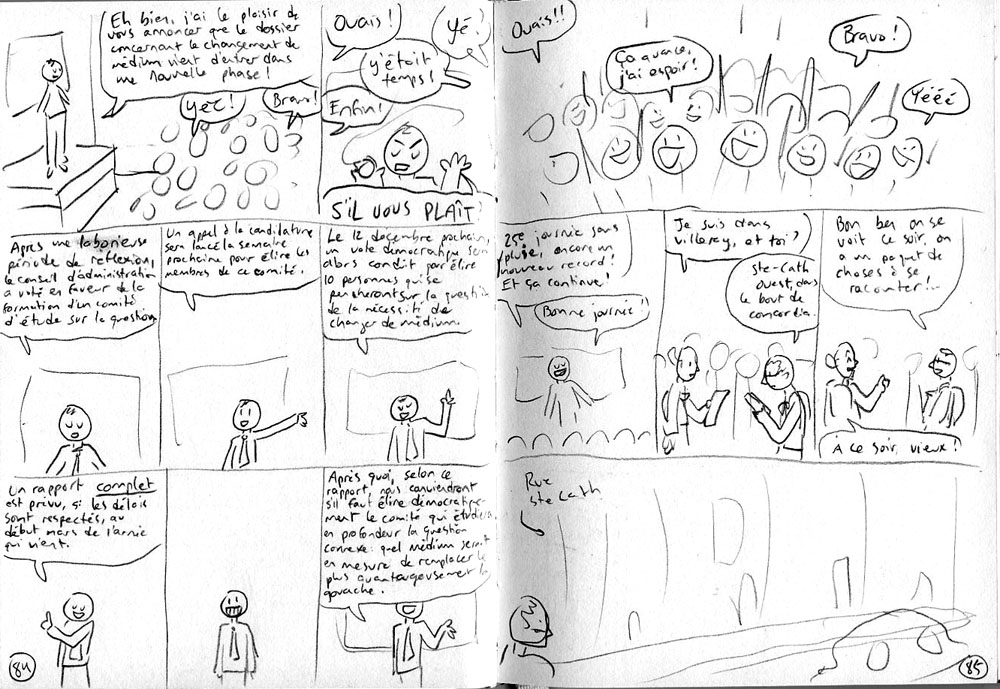 Eh bien, j'ai le plaisir de
vous annoncer que le dossier
concernant le changement de
médium vient d'entrer dans
une nouvelle phase!
Yéé!
Bravo!
Ouais!
Yé!
y'était
temps!
Enfin!
S'IL VOUS PLAÎT!
Après une laborieuse
période de réflexion,
le conseil d'administration
a voté en faveur de la
formation d'un comité
d'étude sur la question.
Un appel à la candidature
sera lancé la semaine
prochaine pour élire les
membres de ce comité.
Le 12 décembre prochain,
un vote démocratique sera
alors conduit par élire
10 personnes qui se
pencheront sur la question
de la nécessité de
changer de médium.
Un rapport complet
est prévu, si les délais
sont respectés, au
début mars de l'année
qui vient.
Après quoi, selon ce
rapport, nous conviendrons
s'il faut élire démocratique-
ment le comité qui étudiera
en profondeur la question
connexe: quel médium serait
en mesure de remplacer le
plus avantageusement la
gouache.
84
Ouais!!
Ça avance,
j'ai espoir!
Bravo!
Yééé
25e journée sans
pluie, encore un
nouveau record!
Et ça continue!
Bonne journée!
Je suis dans
villeray, et toi?
Ste-Cath
ouest, dans
le bout de
concordia.
Bon ben on se
voit ce soir, on
a un paquet de
choses à se
raconter!
À ce soir, vieux!
Rue
Ste Cath
85